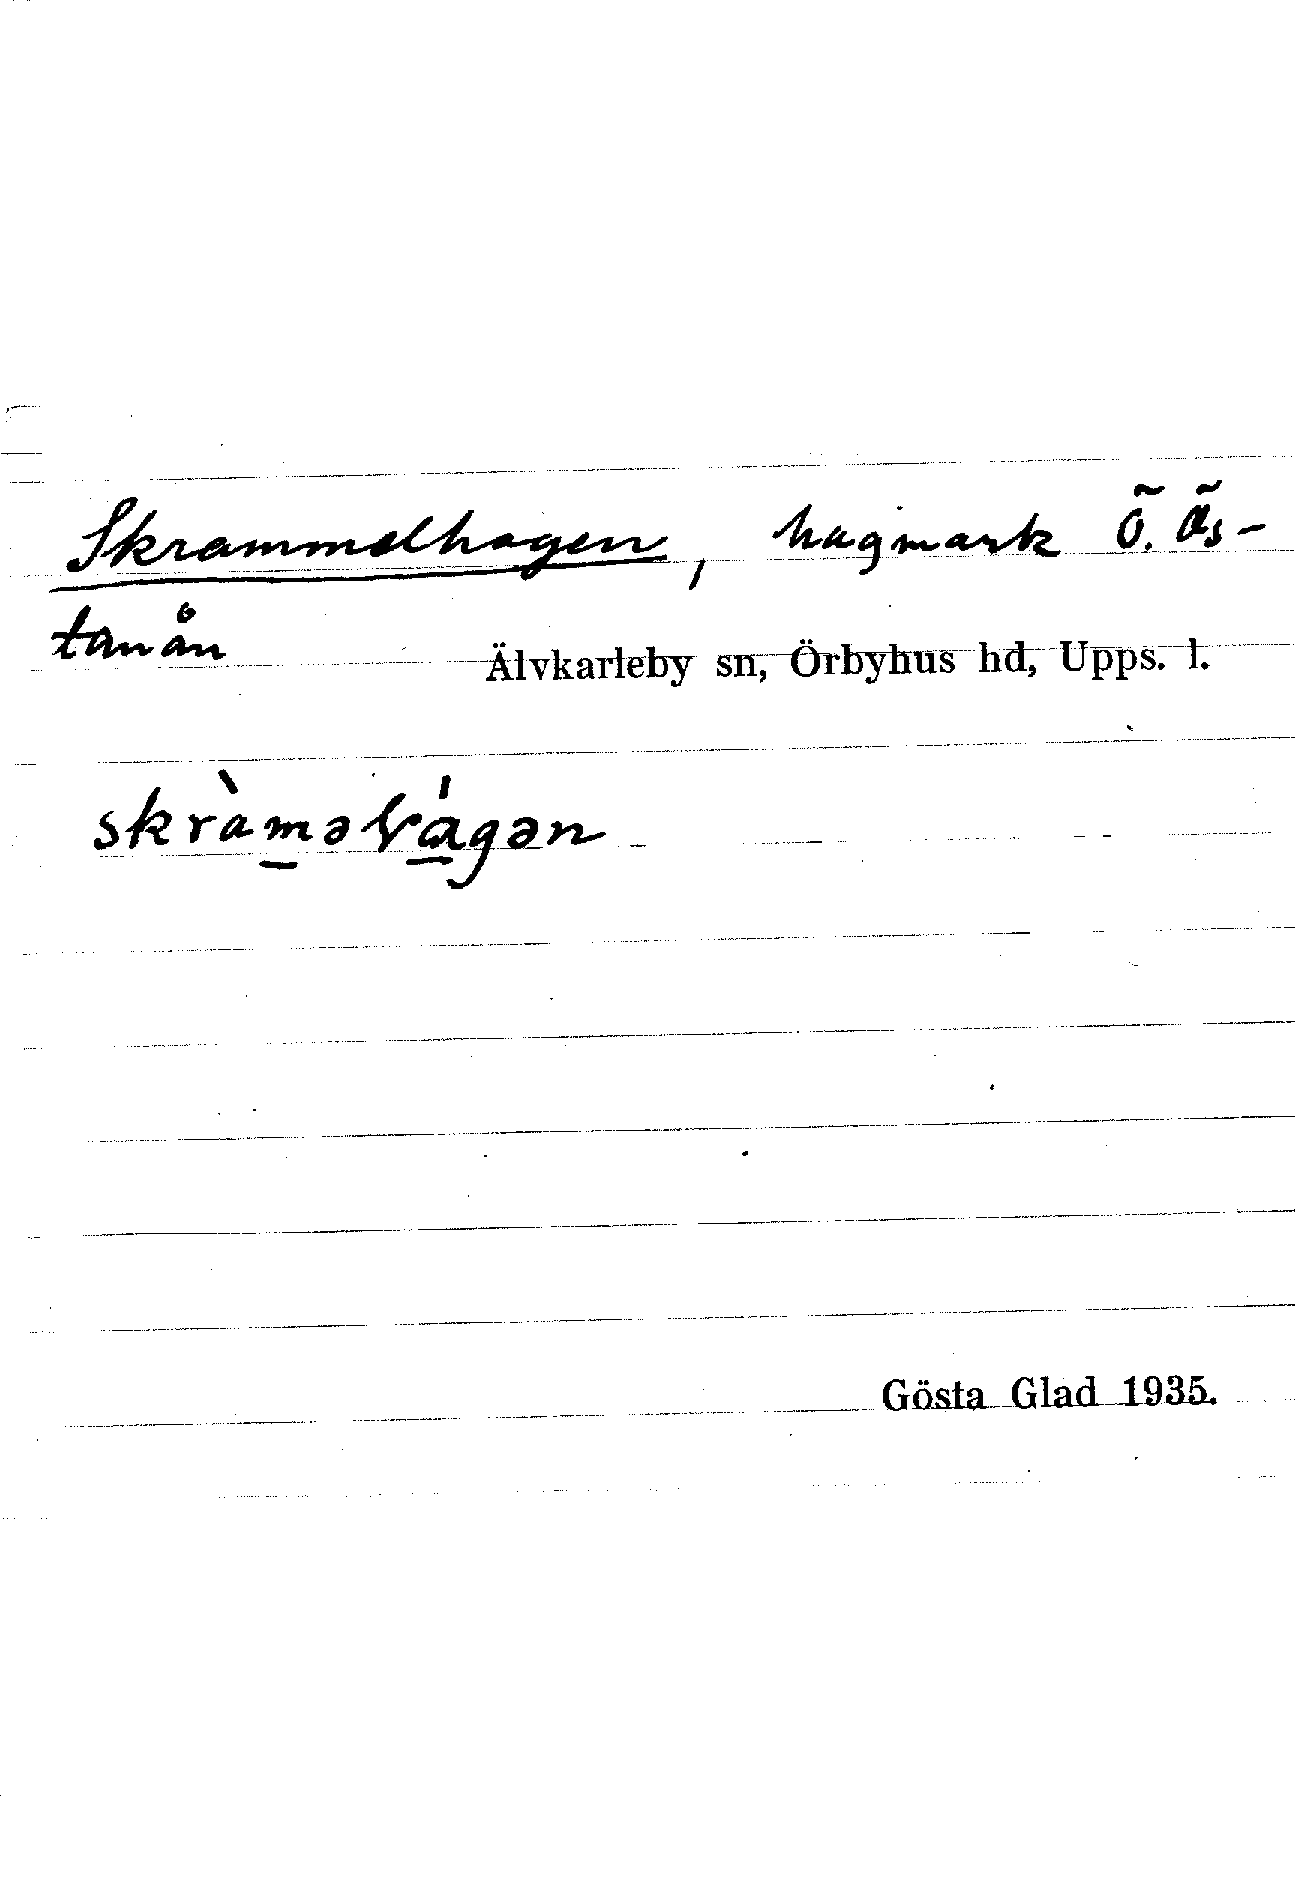 Skrammelhagen, hagmark Ö. Ös-
tanån Älvkarleby sn, Örbyhus hd, Upps. l.
Gösta Glad 1935.